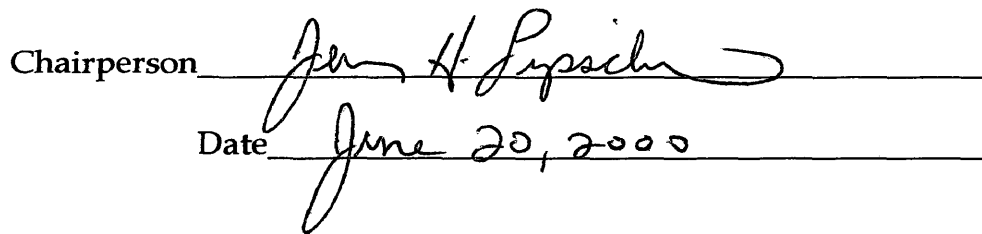 Chairperson H. Lipschu
Date June 20, 2000